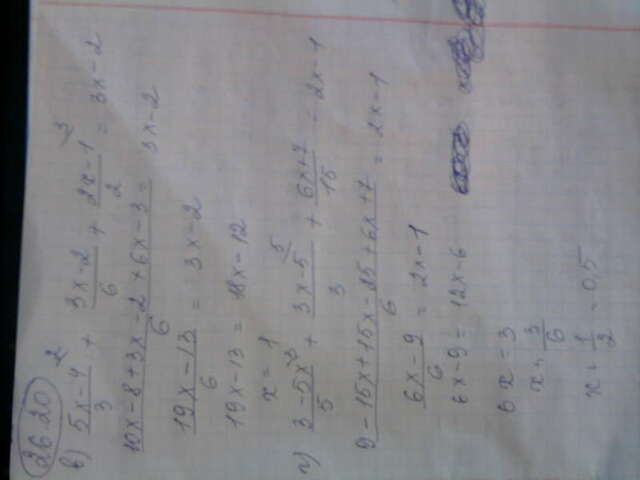 26.20
в) (5x-4)/3 ² + (3x-2)/6 + (2x-1)/2 ³ = 3x-2
(10x-8+3x-2+6x-3)/6 = 3x-2
(19x-13)/6 = 3x-2
19x-13 = 18x-12
x = 1
г) (3-5x)/5 ³ + (3x-5)/3 ⁵ + (6x+7)/15 = 2x-1
(9-15x+15x-25+6x+7)/6 = 2x-1
(6x-9)/6 = 2x-1
6x-9 = 12x-6
6x = 3
x = 3/6
x = 1/2 = 0,5